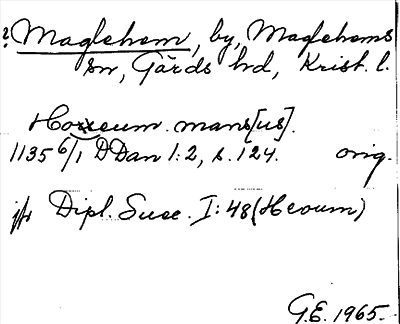 ? Maglehem, by, Maglehems
sn, Gärds hd, Krist. l.
Hoxeum. mans[us].
1135 6/1 DDan 1:2, s. 124. orig.
jfr Dipl. Suec. I: 48 (Heoum)
G.E. 1965.